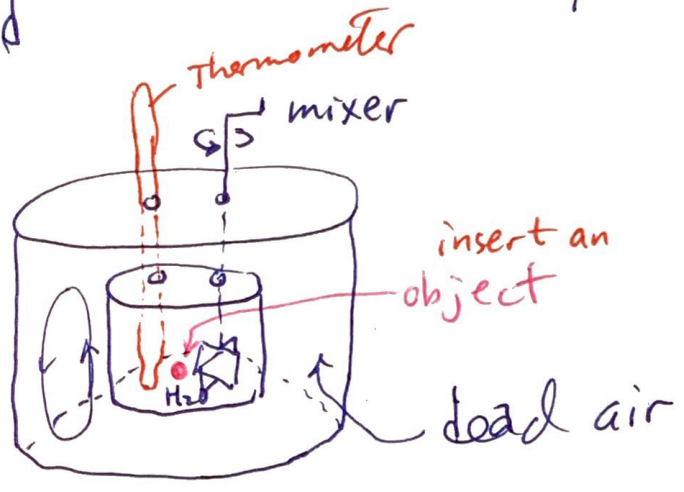 d
Thermometer
mixer
insert an
object
H2O
dead air